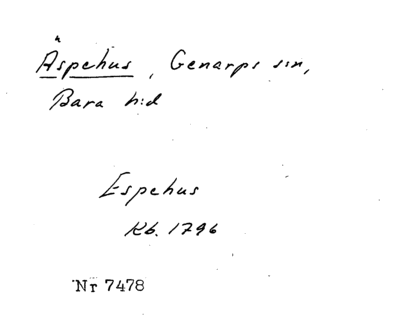 Äspehus, Genarps sn,
Bara h:d
Espehus
Kb. 1796
Nr 7478